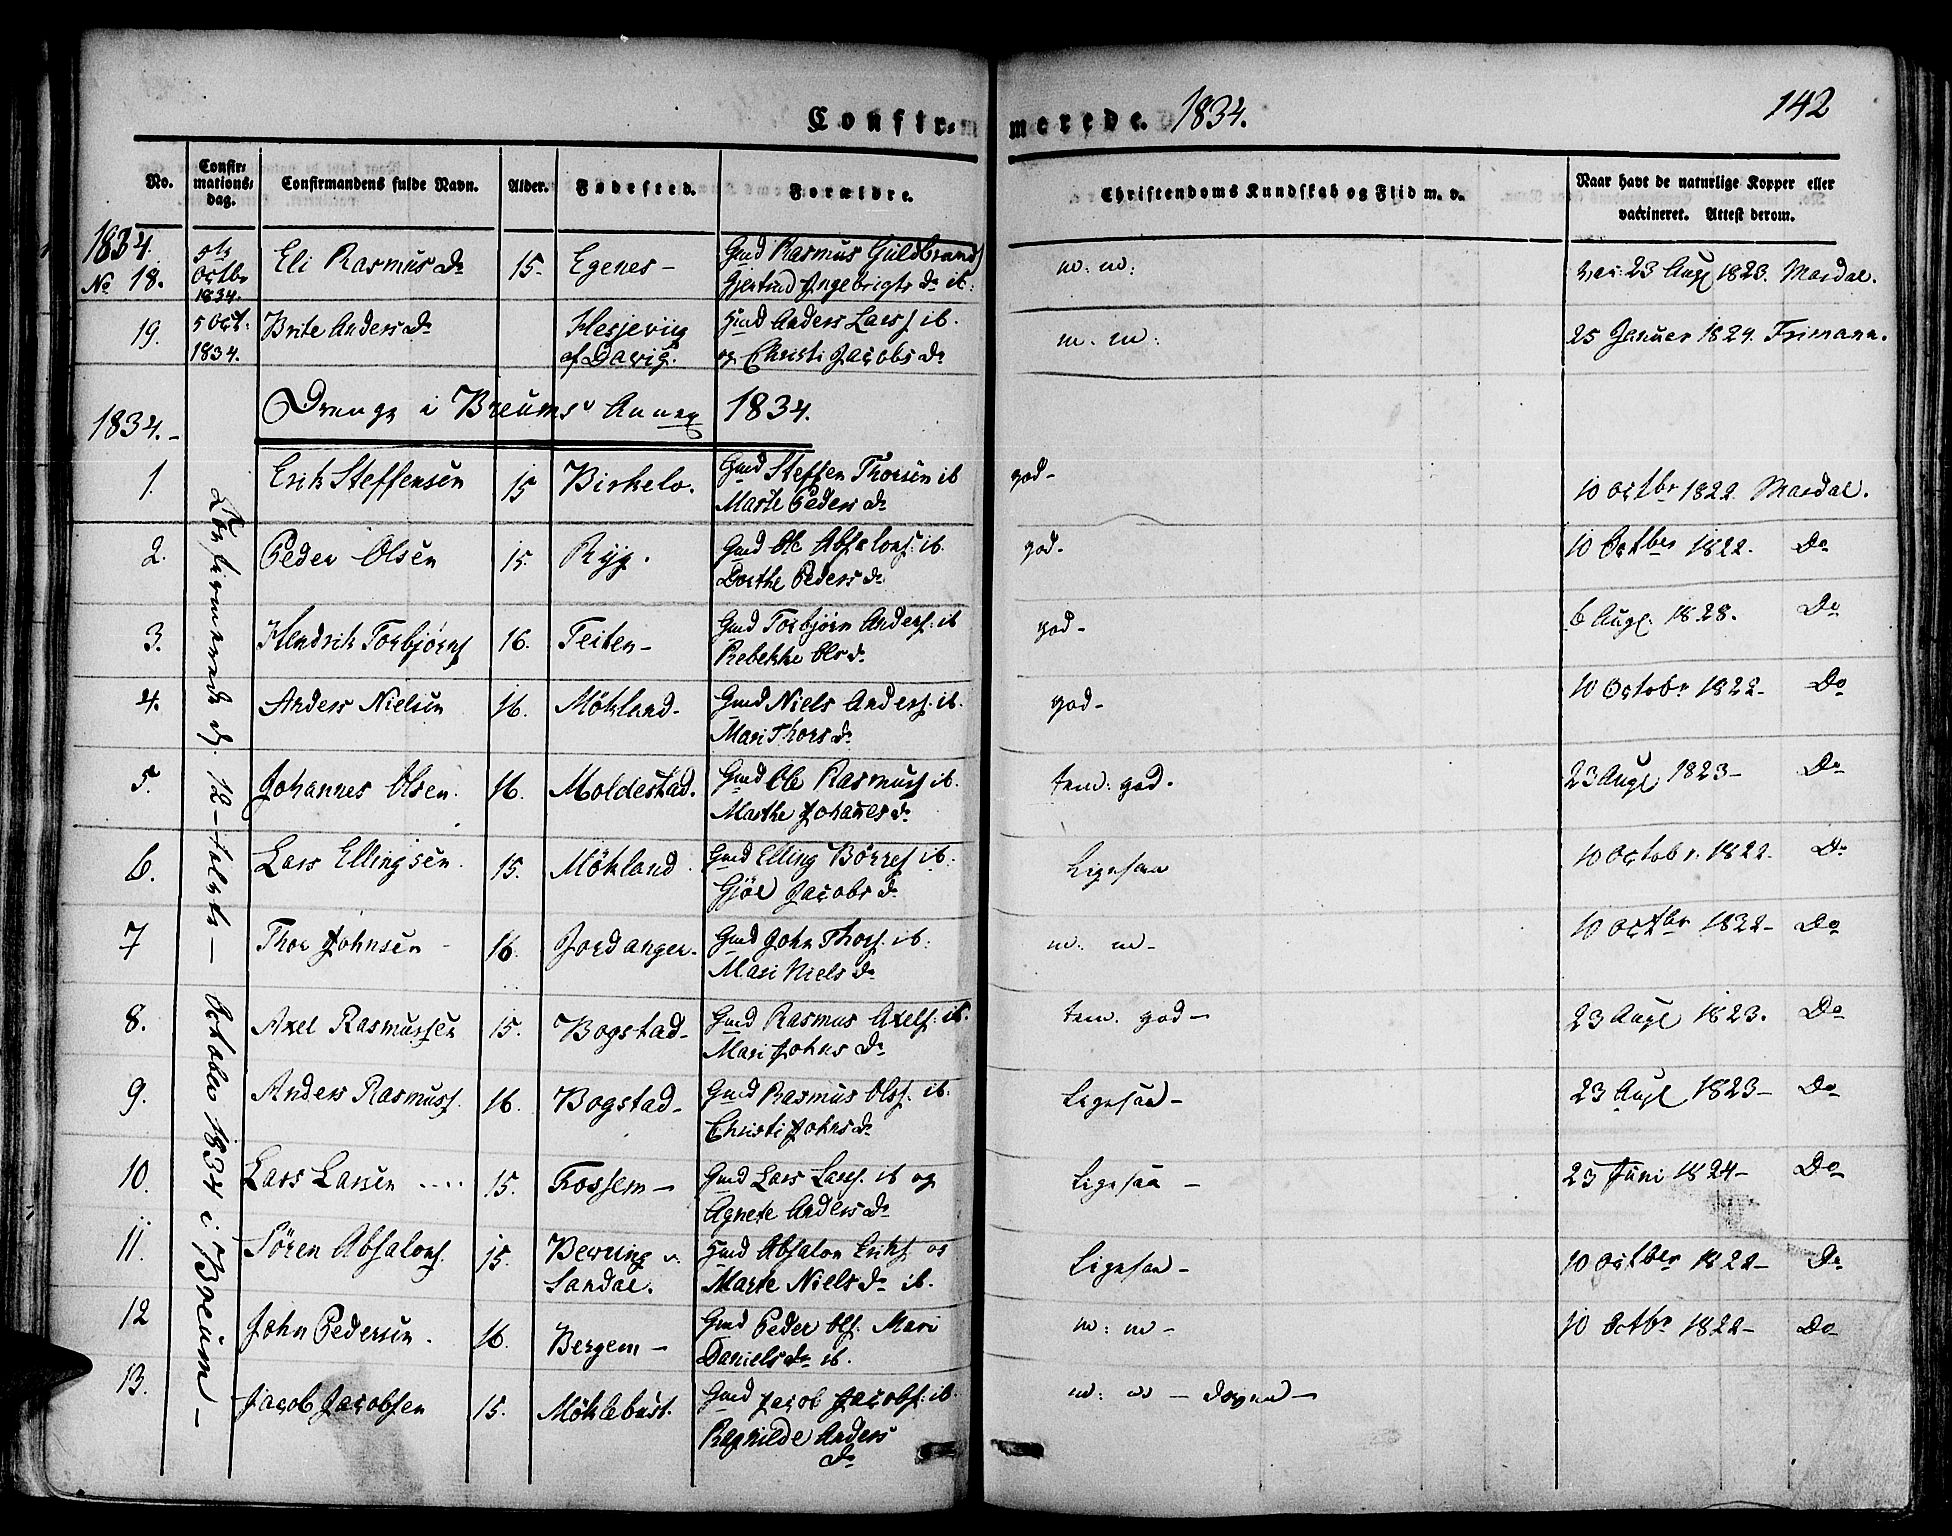 Confirmerede. 1834. 142
No. Confirmations: dag. Confirmandens fulde Navn. Alder. Fødested. Forældre. Christendoms Kundskab og Flid m. v. Naar havt de naturlige Kopper eller vaccineret. Attest derom.
1834. No 18. Octbr 1834. Eli Rasmusdr 15- Egenes- Gmd Rasmus Guldbrands m: m: 23 Augs 1823. Mardal.
Gjertrud Ingebrigtsdr ib:
19. 5 Oct. 1834. Brite Andersdr Hesjeviig Gmd Anders Larss ib. m. m: 25 Januer 1824. Frimann.
af Davig. og Christi Jacobsdr
1834.- Drenge i Breums Annex 1834.
Confirmerede d. 12-tolvte- October 1834 i Breum-
1. Erik Steffensen 15 Birkelo. Gmd Steffen Thorsen ib god- 10 Octbr 1822 Mardal.
Marte Pedersdr
2. Peder Olsen 15. Ryg. Gmd Ole Absalons: ib. god. 10 Octber 1822. Do
Dorthe Pedersdr
3. Hendrik Torbjørns 16. Teiten- Gmd Torbjörn Anders: ib god- 6 Augs. 1828. Do
Rebekke Olsdr.
4. Anders Nielsen 16. Mökland- Gmd Niels Anders: ib. god- 10 Octobr 1822- Do
Mari Thorsdr
5. Johannes Olsen. 16. Moldestad. Gmd Ole Rasmuss ib. tem: god. 23 Augs 1823- Do
Marthe Johanesdr
6. Lars Ellingsen. 15. Mökland. Gmd Elling Börres ib: Ligesaa 10 Octobr. 1822. Do
Gjöe Jacobsdr
7 Thor Johnsen- 16. Jordanger. Gmd John Thors. ib: m: m- 10 Octbr 1832- Do
Mari Nielsdr
8. Axel Rasmussen 15. Bogstad- Gmd Rasmus Axels: ib. tem. god- 23 Augs 1823. Do
Mari Johnsdr
9. Anders Rasmuss. 16. Bogstad- Gmd Rasmus Olss. ib. Ligesaa- 23 Augs 1823- Do
Christi Johnsdr
10. Lars Larsen .... 15. Fossem- Gmd Lars Larss. ib og Ligesaa- 23 Juni 1824- Do
Agnete Andersdr
11. Sören Absalons. 15. Gmd Absalon Eriks og Ligesaa- 10 Octber 1822- Do
Sandal. Marte Nielsdr ib.
12 John Pedersen. 16. Bergem- Gmd Peder Ols. Mari m: m- 10 Octbr 1822- Do
Danielsdr ib.
13. Jacob Jacobsen 15. Möklebust. Gmd Jacob Jacobs: ib. m: m-
Ragnilde Anders
dr